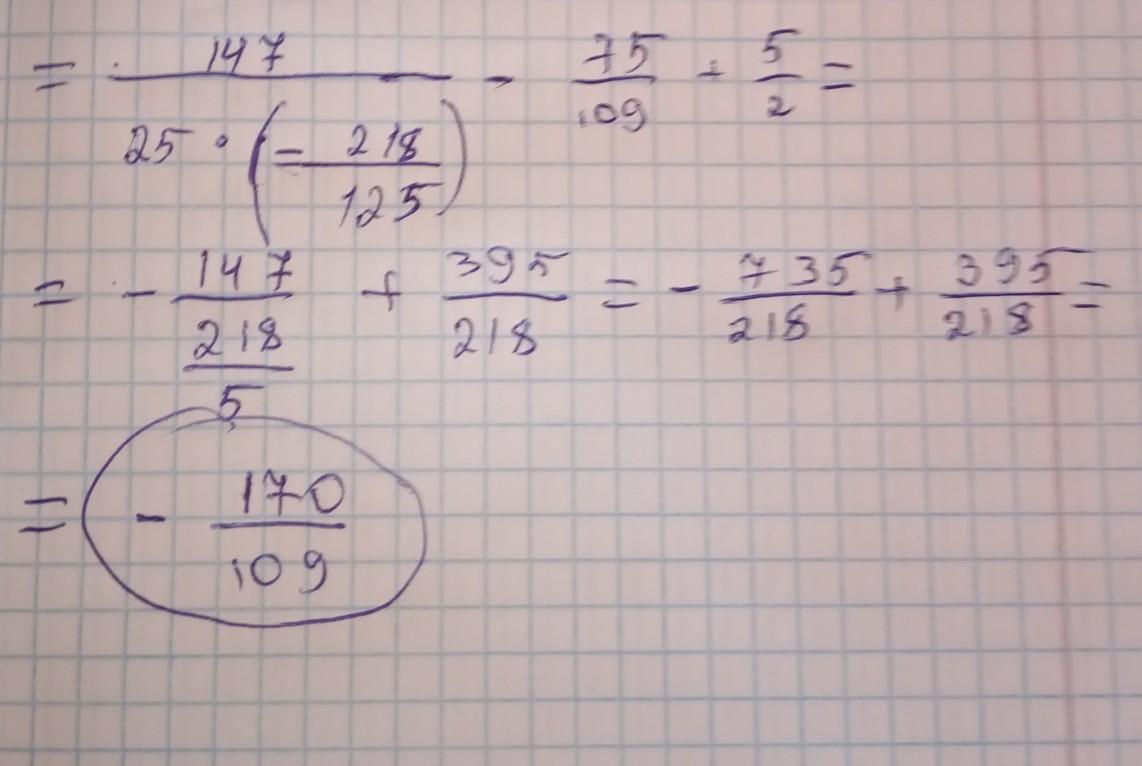 = 147 / 25 · (- 218 / 125) - 75 / 109 + 5 / 2 =
= - 147 / 218 / 5 + 395 / 218 = - 735 / 218 + 395 / 218 =
= - 170 / 109